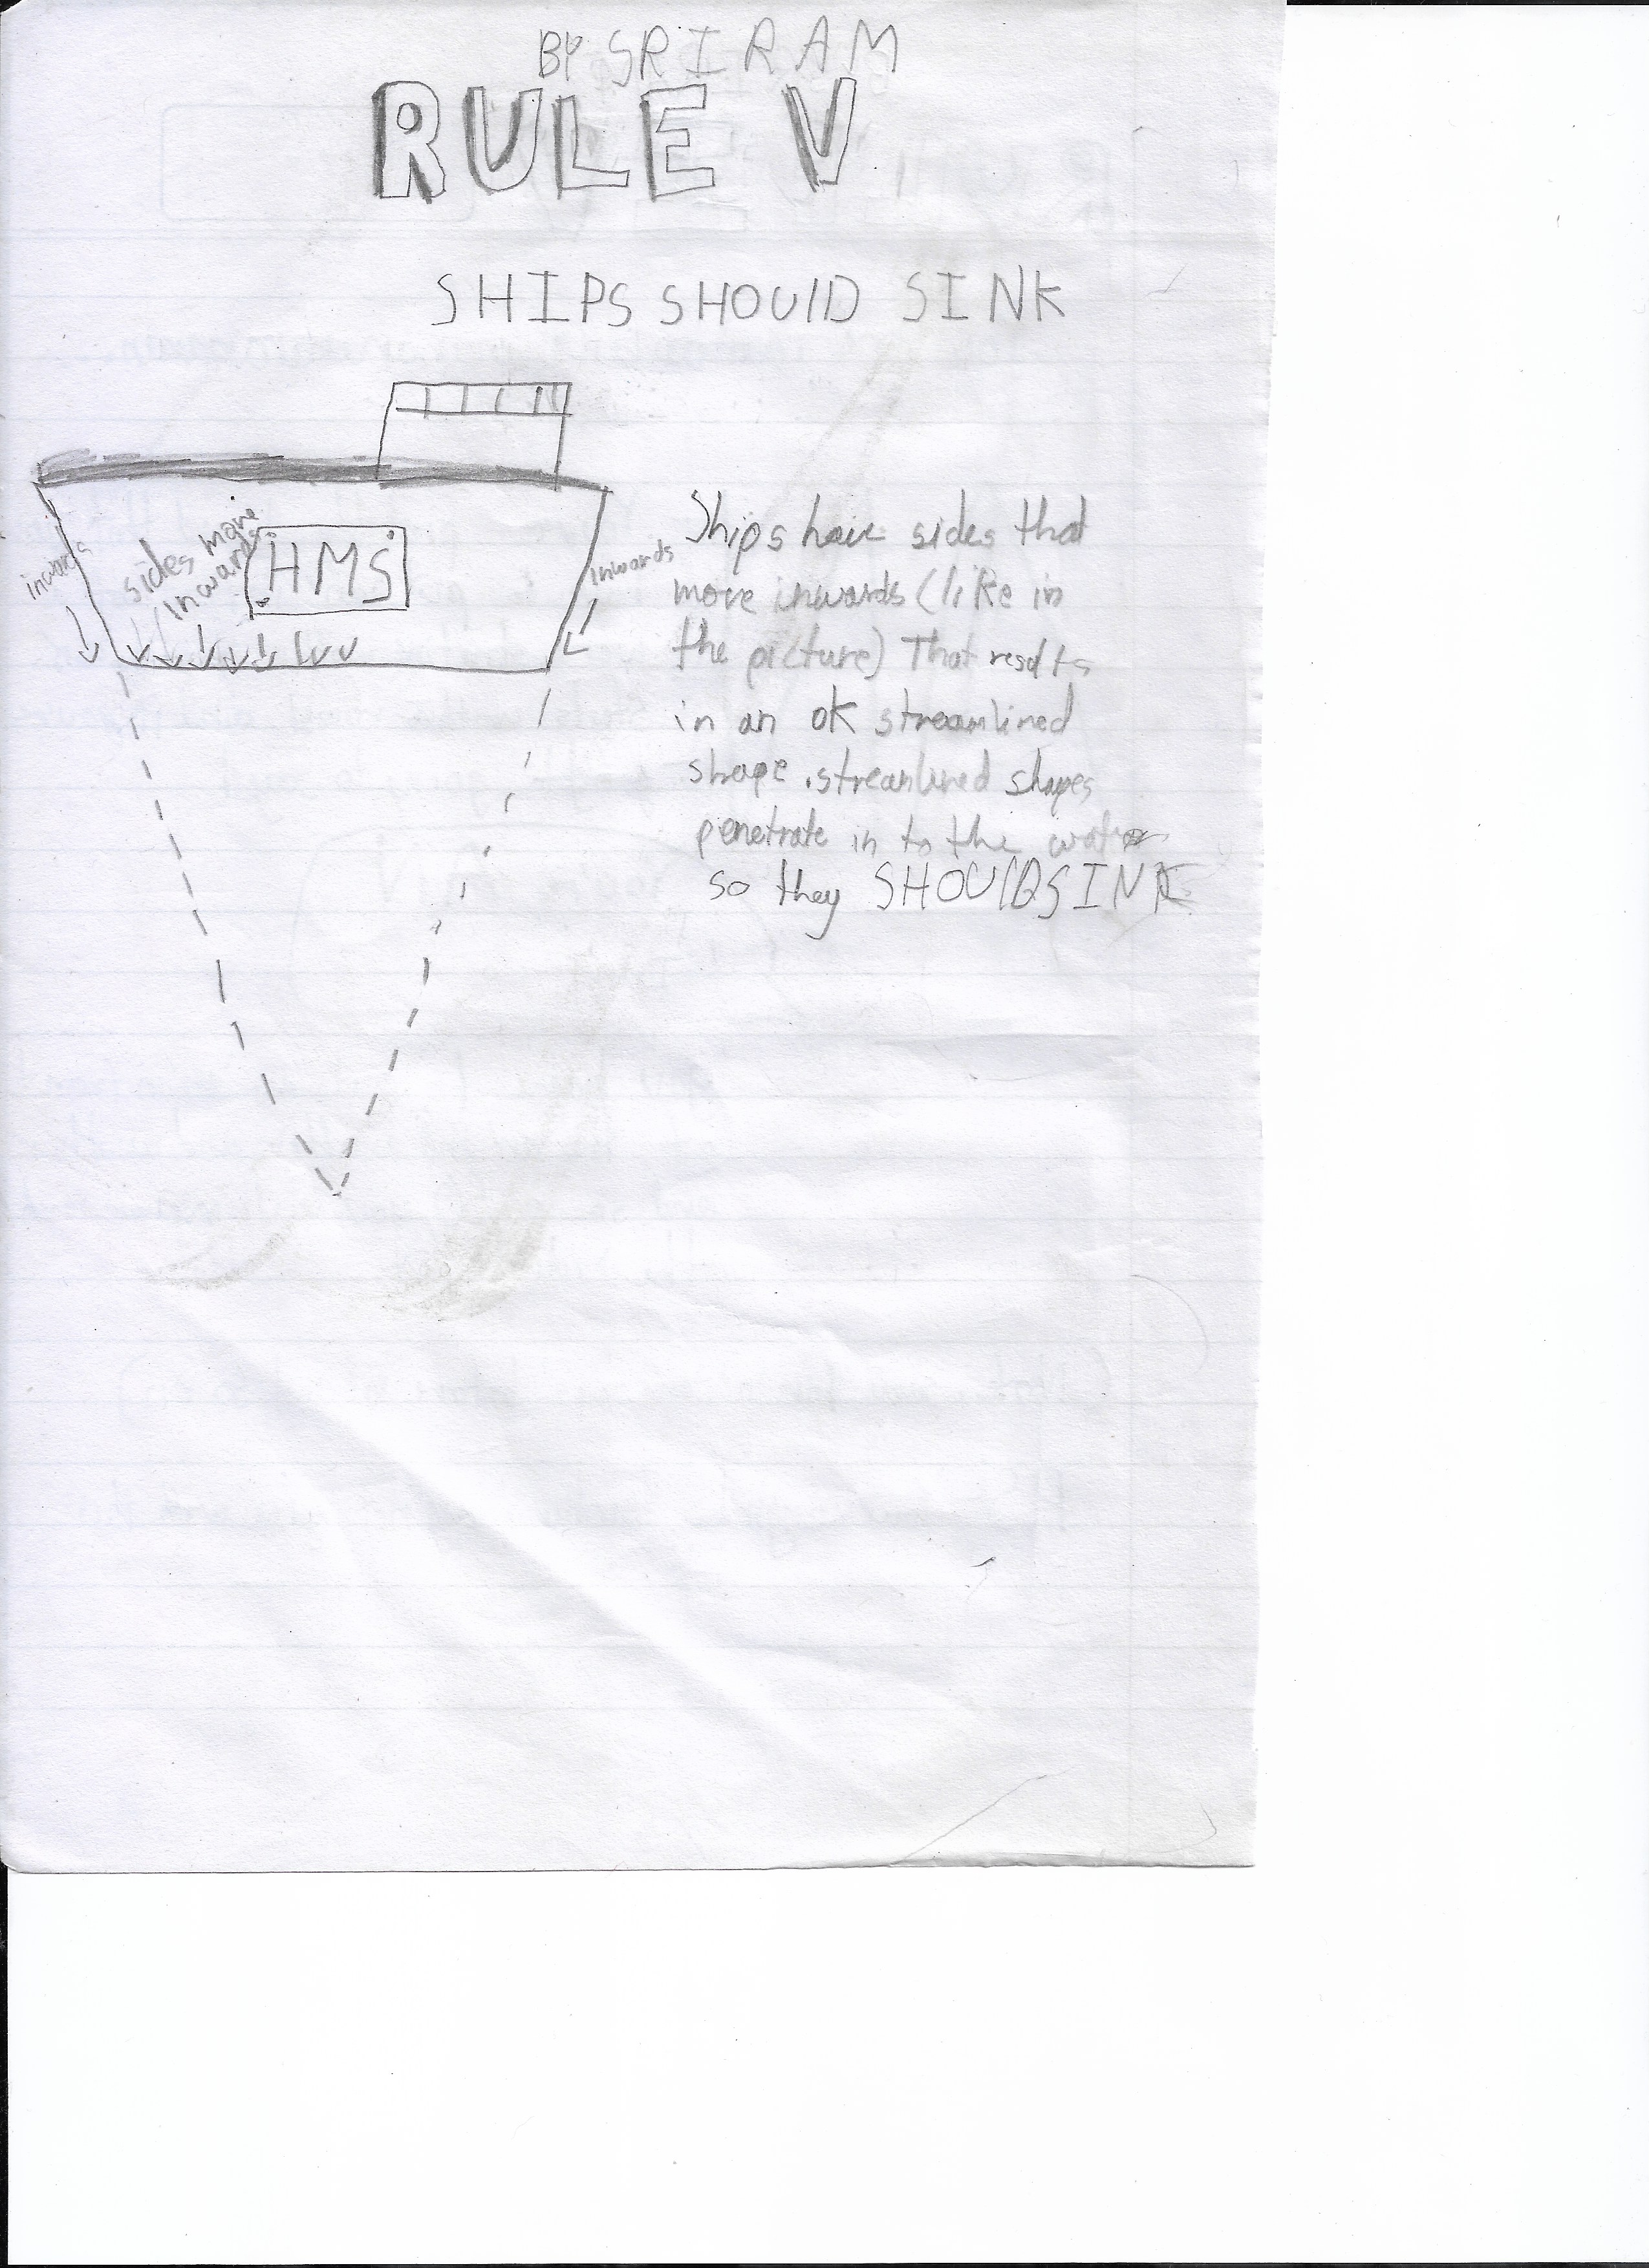 BY SRIRAM
RULE V
SHIPS SHOULD SINK
inwards
sides move
inwards
HMS
inwards
Ships have sides that
move inwards (like in
the picture) That results
in an ok streamlined
shape . streamlined shapes
penetrate in to the water
so they SHOULD SINK